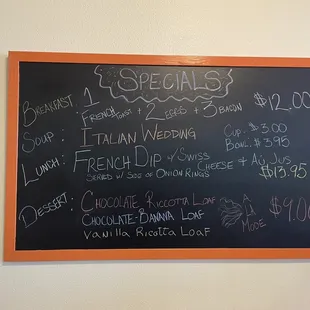 SPECIALS
BREAKFAST: 1 FRENCH TOAST + 2 EGGS + 3 BACON $12.00
SOUP: ITALIAN WEDDING CUP: $3.00
BOWL: $3.95
LUNCH: FRENCH DIP W/ SWISS CHEESE + AU JUS
SERVED W/ SIDE OF ONION RINGS $13.95
DESSERT: CHOCOLATE RICCOTTA LOAF
CHOCOLATE-BANANA LOAF
VANILLA RICOTTA LOAF
LA MODE
$9.00